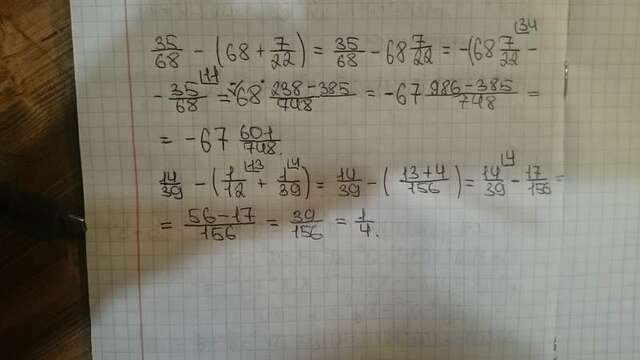 35/68 - (68 + 7/22) = 35/68 - 68 7/22 = -(68 7/22 -
- 35/68 = -68 238-385/748 = -67 986-385/748 =
= -67 601/748.
14/39 - (1/12 + 1/39) = 14/39 - (13+4/156) = 14/39 - 17/156 =
= 56-17/156 = 39/156 = 1/4.